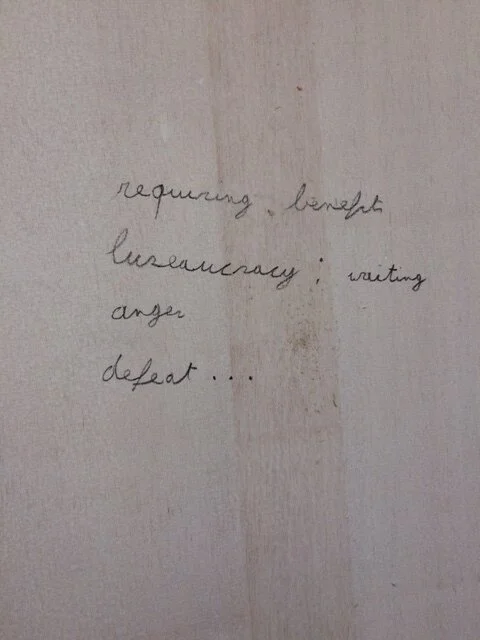 requiring. benefit
bureaucracy: waiting
anger
defeat...